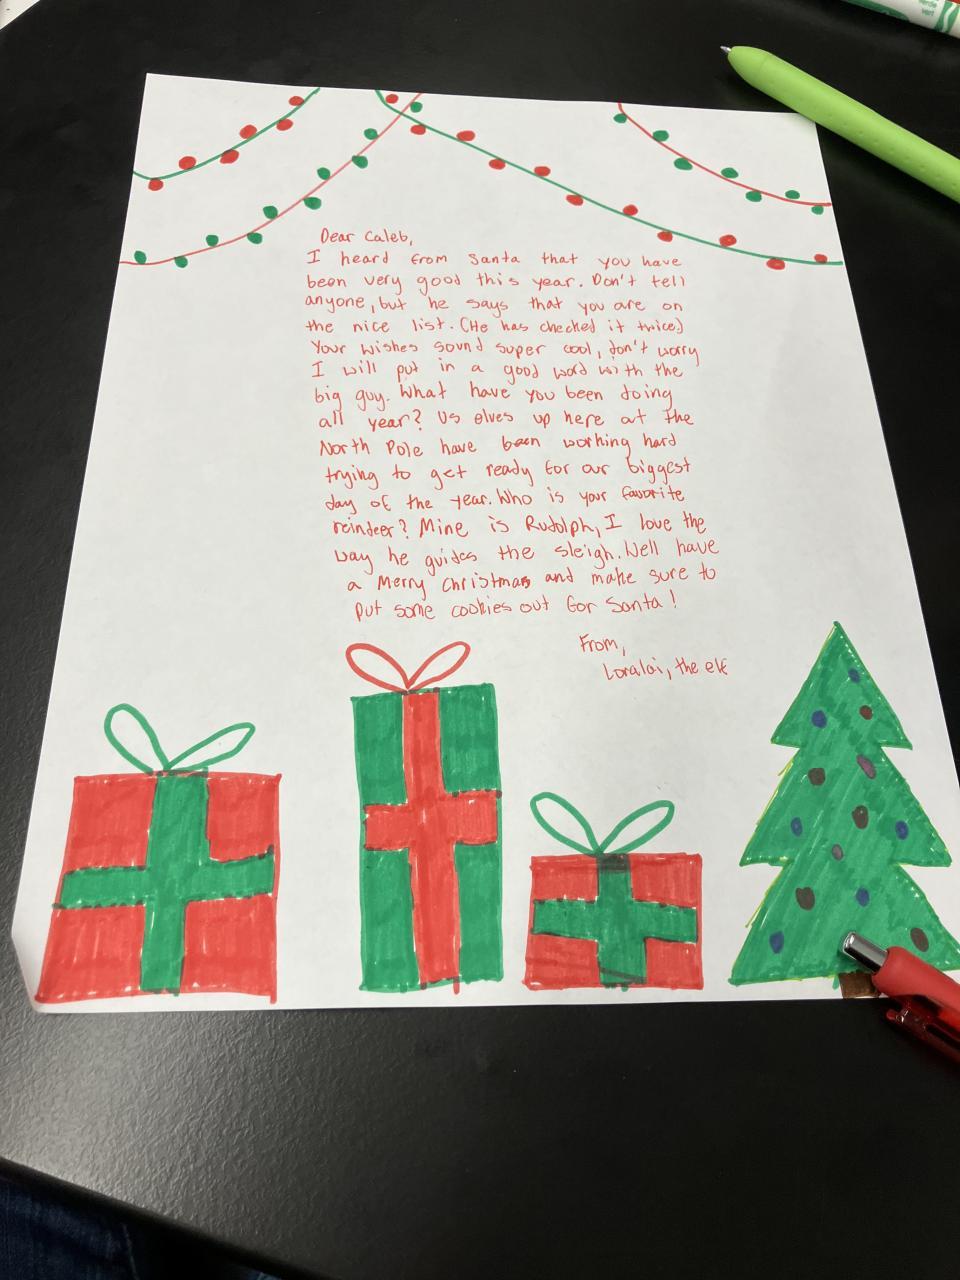 Dear Caleb,
I heard from Santa that you have
been very good this year. Don't tell
anyone, but he says that you are on
the nice list. (He has checked it twice)
Your wishes sound super cool, don't worry
I will put in a good word with the
big guy. What have you been doing
all year? Us elves up here at the
North Pole have been working hard
trying to get ready for our biggest
day of the year. Who is your favorite
reindeer? Mine is Rudolph, I love the
way he guides the sleigh. Well have
a Merry Christmas and make sure to
put some cookies out for Santa!
From,
Loralai, the elf